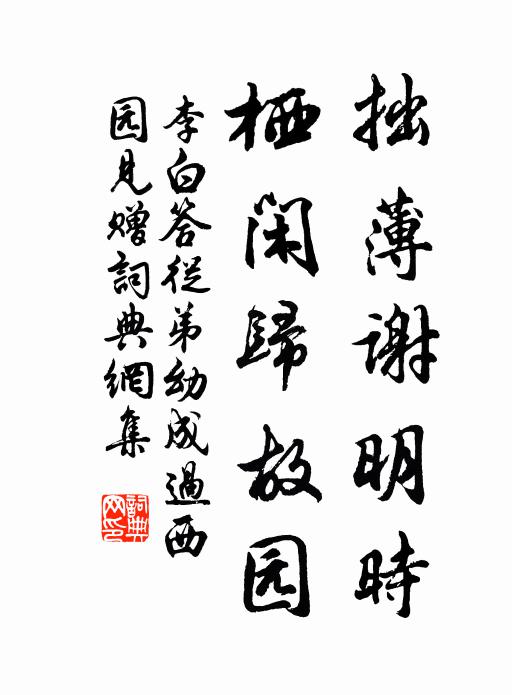 拙薄谢明時
栖闲歸故园
李白答從弟幼成過西
园見赠詞典網集
詞典网印